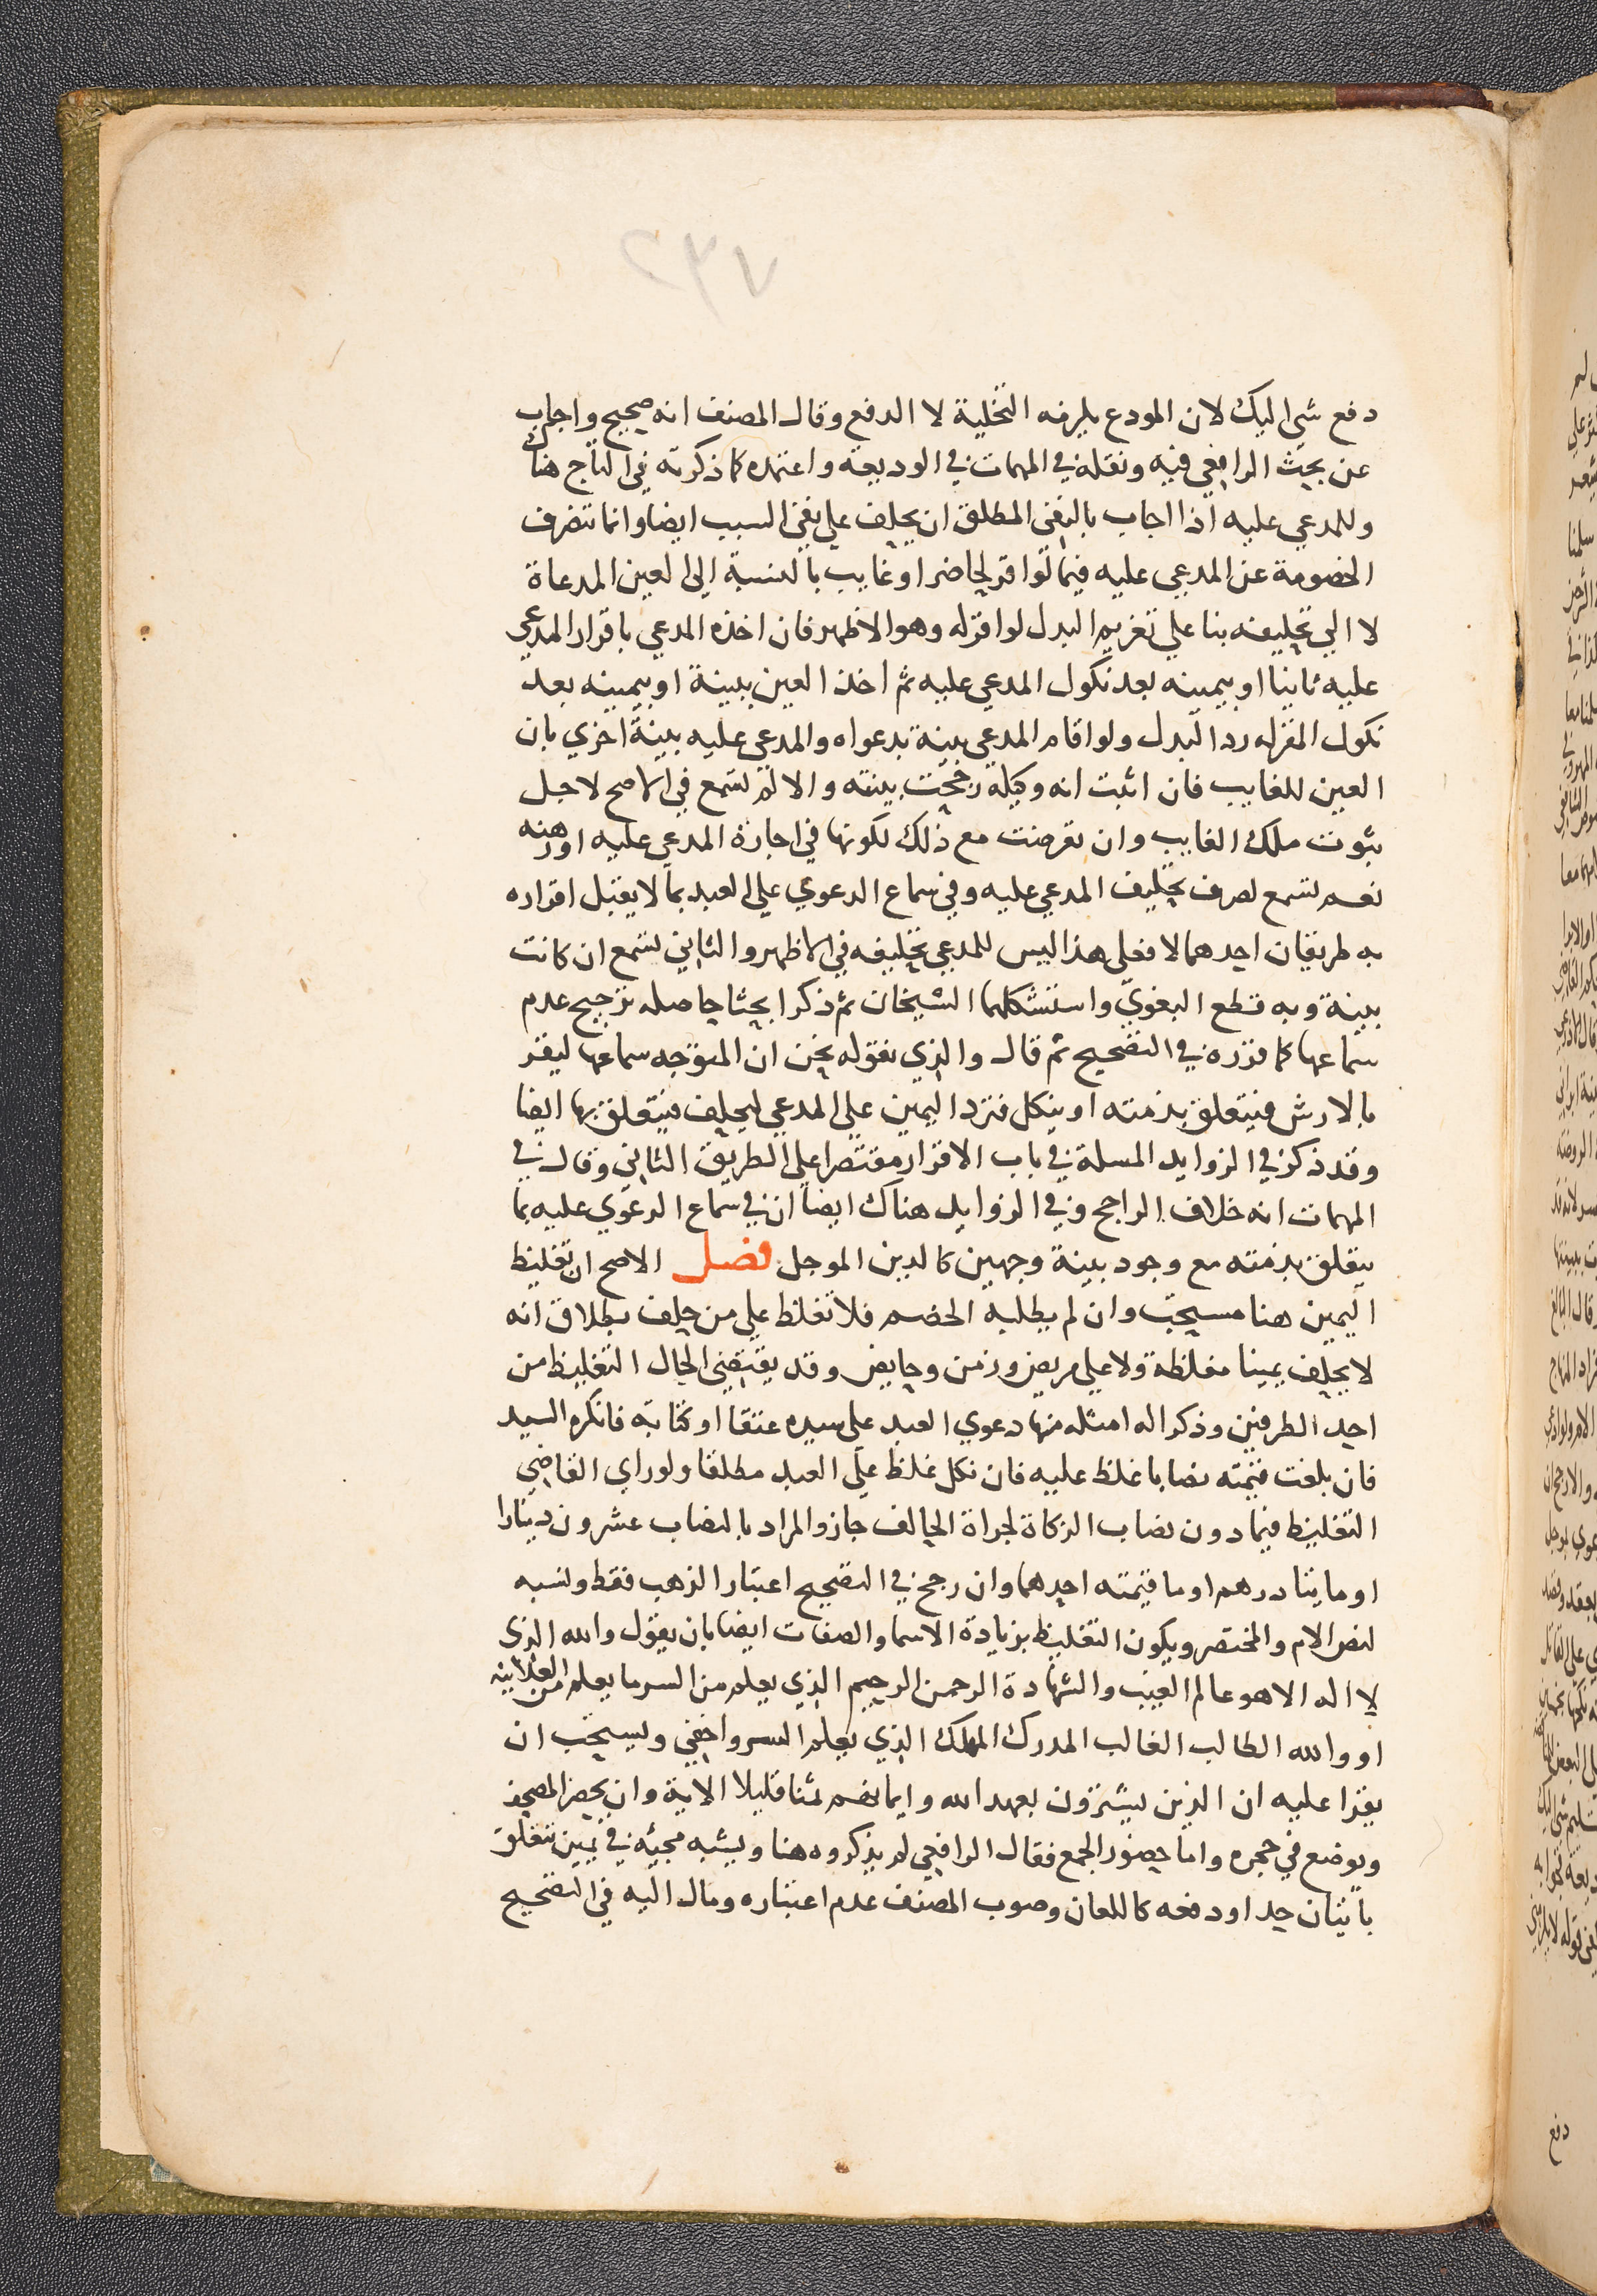 ٢٣٧
دفع شي اليك لان المودع يلزمه التخلية لا الدفع وقال المصنف انه صحيح واجاب
عن بحث الرافعي فيه ونقله في المهمات في الوديعة واعتمده كما ذكرته في التاج هناك
وللمدعي عليه اذا اجاب بالنفي المطلق ان يحلف علي نفي السبب ايضا وانما تنصرف
الخصومة عن المدعي عليه فيما لو اقر لحاضر او غايب بالنسبة الي العين المدعاة
لا الي تحليفه بنا علي تغريم البدل لو اقر له وهو الاظهر فان اخذه المدعي باقرار المدعي
عليه ثانيا او بيمينه بعد نكول المدعي عليه ثم اخذ العين ببينة او بيمينه بعد
نكول المقر له رد البدل ولو اقام المدعي بينة بدعواه والمدعي عليه بينة اخري بان
العين للغايب فان اثبت انه وكيله رجحت بينته والا لم تسمع في الاصح لاجل
ثبوت ملك الغايب وان تعرضت مع ذلك لكونها في اجارة المدعي عليه او رهنه
نعم تسمع لصرف تحليف المدعي عليه وفي سماع الدعوي علي العبد بما لا يقبل اقراره
به طريقان احدهما لا فعلي هذا ليس للمدعي تحليفه في الاظهر والثاني تسمع ان كانت
بينة وبه قطع البغوي واستشكلهما الشيخان ثم ذكرا بحثا حاصله ترجيح عدم
سماعها كما قرره في التصحيح ثم قال والذي نقوله نحن ان المتوجه سماعها ليقر
بالارش فيتعلق بذمته او ينكل فترد اليمين علي المدعي ليحلف فيتعلق بها ايضا
وقد ذكر في الزوايد المسلة في باب الاقرار مقتصرا علي الطريق الثاني وقال في
المهمات انه خلاف الراجح وفي الزوايد هناك ايضا ان في سماع الدعوي عليه بما
يتعلق بذمته مع وجود بينة وجهين كالدين الموجل فصل الاصح ان تغليظ
اليمين هنا مستحب وان لم يطلبه الخصم فلا تغلظ علي من حلف بطلاق انه
لا يحلف يمينا مغلظة ولا علي مريض وزمن وحايض وقد يقتضي الحال التغليظ من
احد الطرفين وذكرا له امثله منها دعوي العبد علي سيده عتقا او كتابة فانكره السيد
فان بلغت قيمته نصابا غلظ عليه فان نكل غلظ علي العبد مطلقا ولو راي القاضي
التغليظ فيما دون نصاب الزكاة لجراة الحالف جاز والمراد بالنصاب عشرون دينارا
او مايتا درهم او ما قيمته احدهما وان رجح في التصحيح اعتبار الذهب فقط ونسبه
لنص الام والمختصر ويكون التغليظ بزيادة الاسما والصفات ايضا بان يقول والله الذي
لا اله الا هو عالم الغيب والشهادة الرحمن الرحيم الذي يعلم من السر ما يعلم من العلانيه
او والله الطالب الغالب المدرك المهلك الذي يعلم السر واخفي ويستحب ان
يقرا عليه ان الذين يشترون بعهد الله وايمانهم ثمنا قليلا الاية وان يحضر المصحف
ويوضع في حجره واما حضور الجمع فقال الرافعي لم يذكروه هنا ويشبه مجيئه في يمين تتعلق
باثبات حد او دفعه كاللعان وصوب المصنف عدم اعتباره ومال اليه في التصحيح
دفع